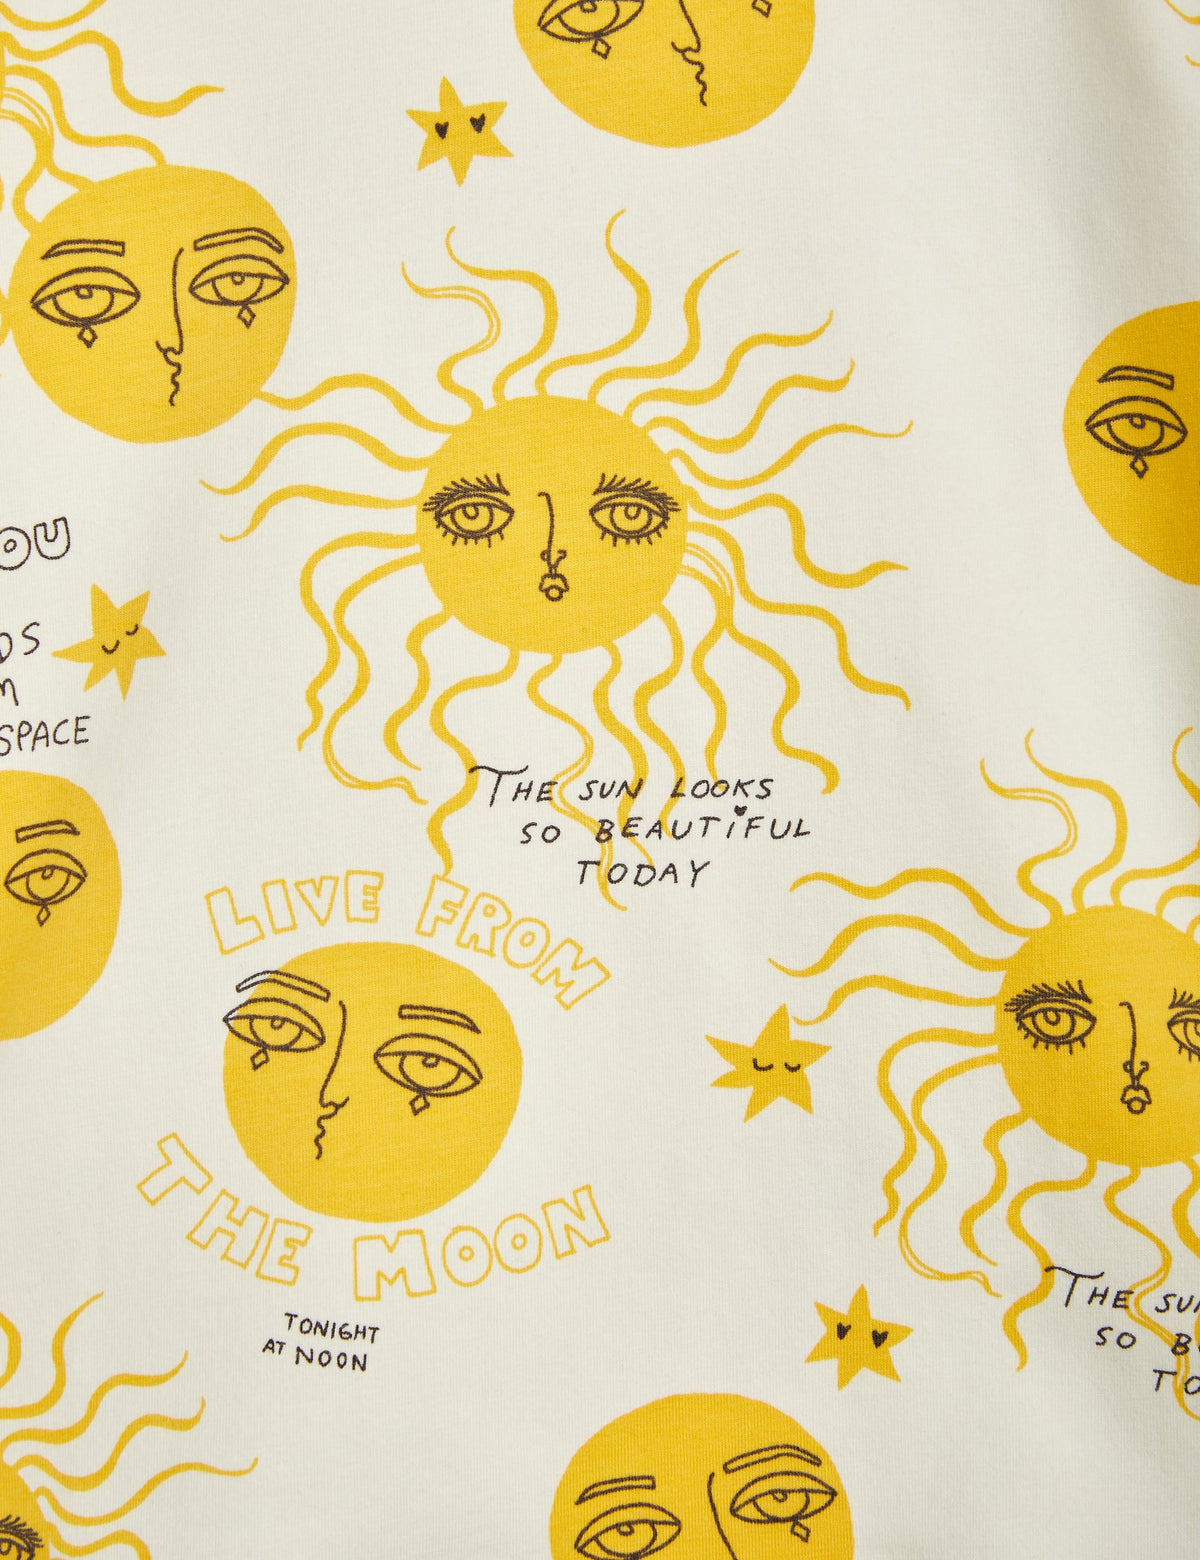 OU
DS
M
SPACE
THE SUN LOOKS
SO BEAUTiFUL
TODAY
LIVE FROM
THE MOON
TONIGHT
AT NOON
THE SUN
SO B
TO